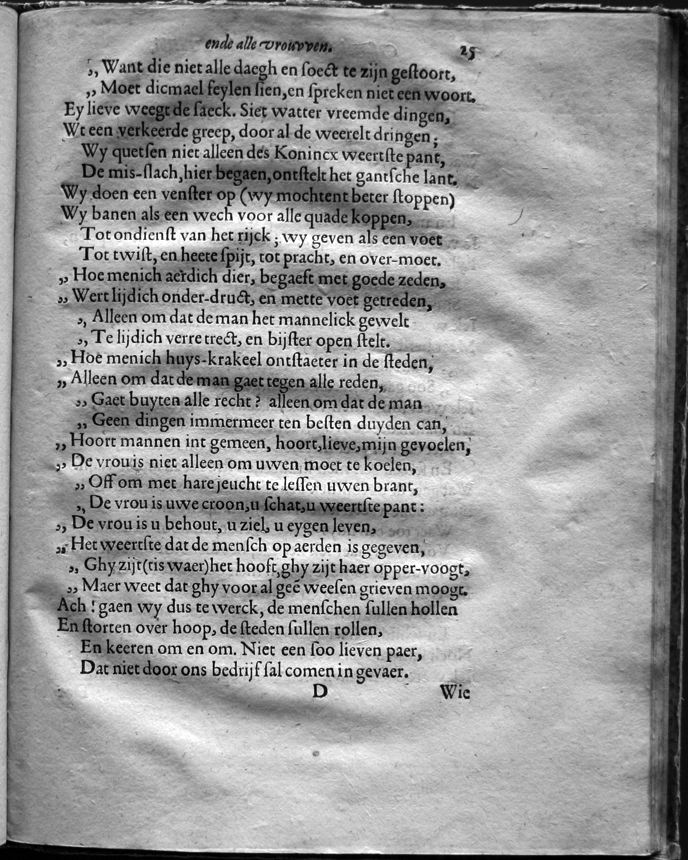 ende alle vrouwen. 25
,, Want die niet alle daegh en soect te zijn gestoort,
,, Moet dicmael feylen sien, en spreken niet een woort.
Ey lieve weegt de saeck. Siet watter vreemde dingen,
Wt een verkeerde greep, door al de weerelt dringen;
Wy quetsen niet alleen des Konincx weertste pant,
De mis-slach, hier begaen, ontstelt het gantsche lant.
Wy doen een venster op (wy mochtent beter stoppen)
Wy banen als een wech voor alle quade koppen,
Tot ondienst van het rijck; wy geven als een voet
Tot twist, en heete spijt, tot pracht, en over-moet.
,, Hoe menich aerdich dier, begaeft met goede zeden,
,, Wert lijdich onder-druct, en mette voet getreden,
,, Alleen om dat de man het mannelick gewelt
,, Te lijdich verre trect, en bijster open stelt.
,, Hoe menich huys-krakeel ontstaeter in de steden,
,, Alleen om dat de man gaet tegen alle reden,
,, Gaet buyten alle recht? alleen om dat de man
,, Geen dingen immermeer ten besten duyden can,
,, Hoort mannen int gemeen, hoort, lieve, mijn gevoelen,
,, De vrou is niet alleen om uwen moet te koelen,
,, Off om met hare jeucht te lessen uwen brant,
,, De vrou is uwe croon, u schat, u weertste pant:
,, De vrou is u behout, u ziel, u eygen leven,
,, Het weertste dat de mensch op aerden is gegeven,
,, Ghy zijt (tis waer) het hooft, ghy zijt haer opper-voogt,
,, Maer weet dat ghy voor al geē weesen grieven moogt.
Ach! gaen wy dus te werck, de menschen sullen hollen
En storten over hoop, de steden sullen rollen,
En keeren om en om. Niet een soo lieven paer,
Dat niet door ons bedrijf sal comen in gevaer.
D Wie